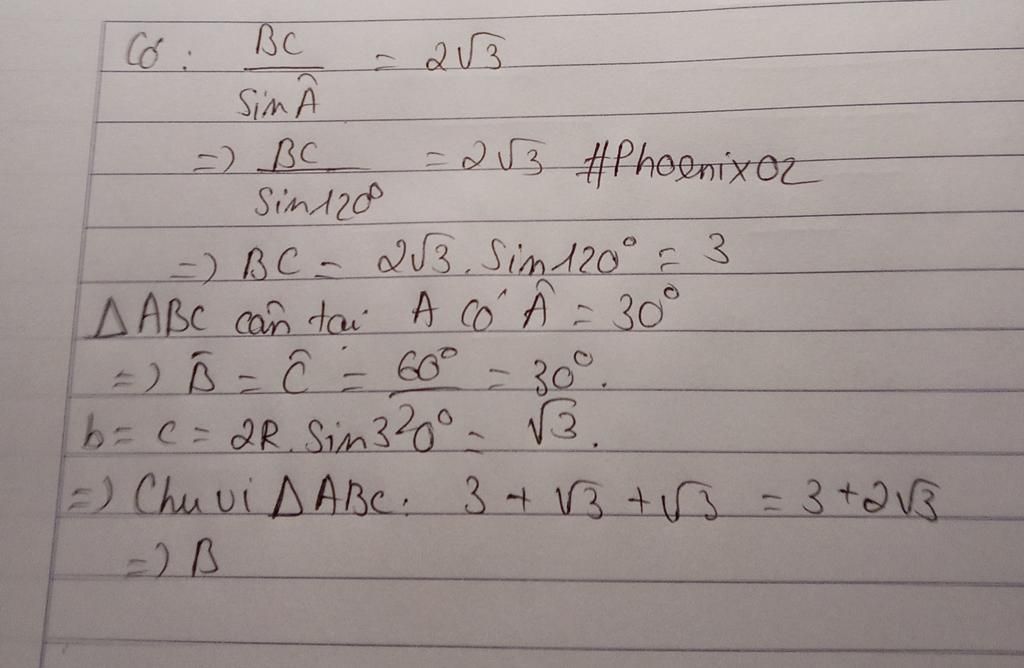 Có: BC / Sin Â = 2√3
=> BC / Sin 120° = 2√3 #Phoenixoz
=> BC = 2√3. Sin 120° = 3
Δ ABC cân tại A có Â = 30°
=> B̂ = Ĉ = 60° / = 30°.
b = c = 2R. Sin 320° = √3.
=> Chu vi Δ ABC: 3 + √3 + √3 = 3 + 2√3
=> B